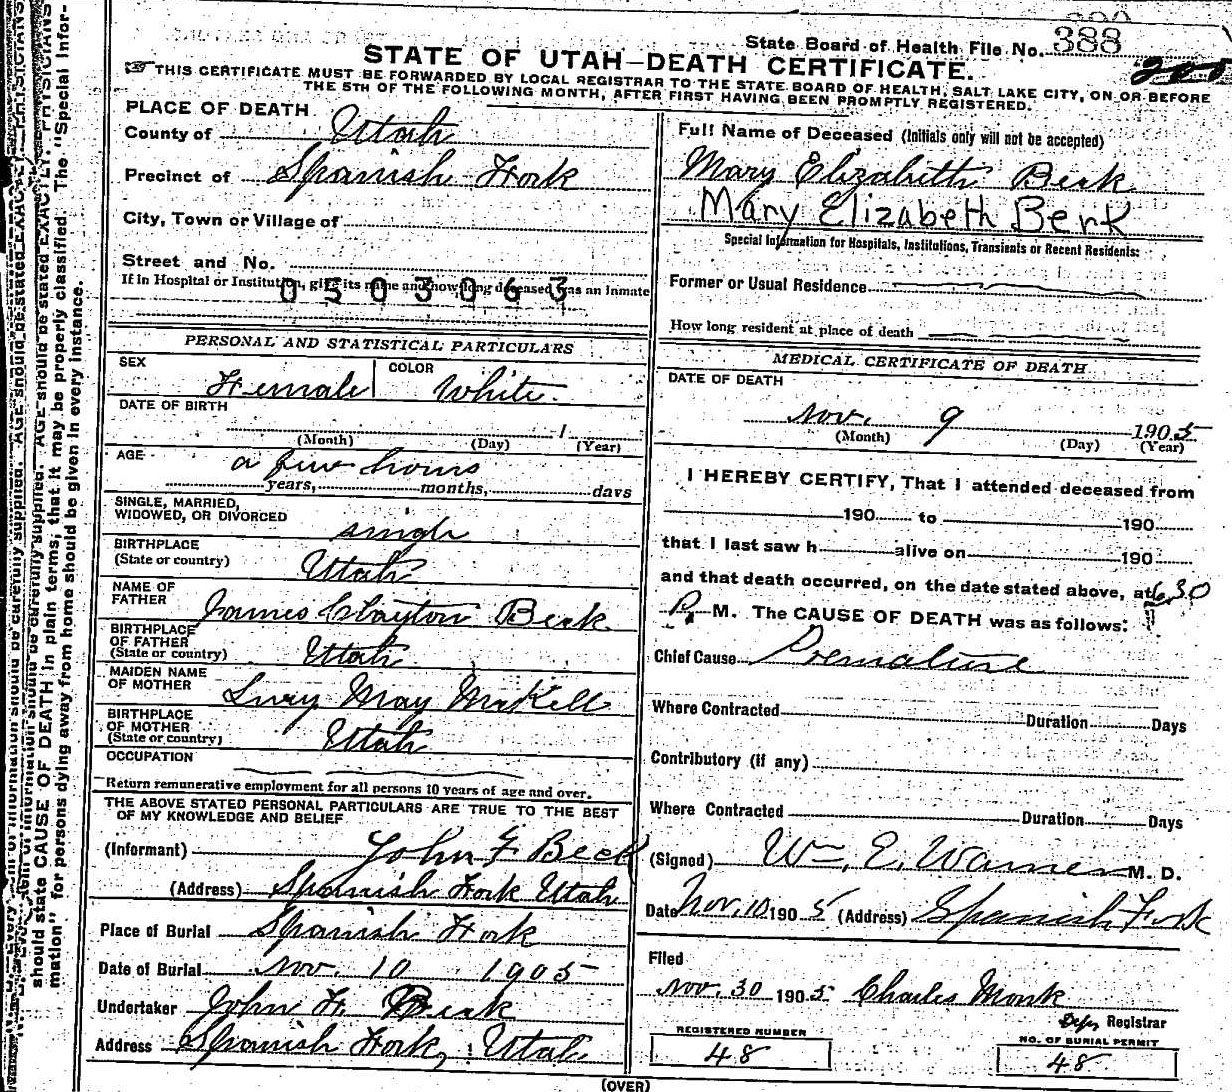 State Board of Health File No. 388
STATE OF UTAH—DEATH CERTIFICATE.
THIS CERTIFICATE MUST BE FORWARDED BY LOCAL REGISTRAR TO THE STATE BOARD OF HEALTH, SALT LAKE CITY, ON OR BEFORE
THE 5TH OF THE FOLLOWING MONTH, AFTER FIRST HAVING BEEN PROMPTLY REGISTERED.
PLACE OF DEATH
County of Utah
Precinct of Spanish Fork
City, Town or Village of
Street and No.
If in Hospital or Institution, give its name and how long deceased was an inmate
0503063
PERSONAL AND STATISTICAL PARTICULARS
SEX Female COLOR White
DATE OF BIRTH 1
(Month) (Day) (Year)
AGE a few hours
years, months, days
SINGLE, MARRIED,
WIDOWED, OR DIVORCED single
BIRTHPLACE
(State or country) Utah
NAME OF
FATHER James Clayton Berk
BIRTHPLACE
OF FATHER
(State or country) Utah
MAIDEN NAME
OF MOTHER May McKell
BIRTHPLACE
OF MOTHER
(State or country) Utah
OCCUPATION
Return remunerative employment for all persons 10 years of age and over.
THE ABOVE STATED PERSONAL PARTICULARS ARE TRUE TO THE BEST
OF MY KNOWLEDGE AND BELIEF
(Informant) John F Beck
(Address) Spanish Fork Utah
Place of Burial Spanish Fork
Date of Burial Nov. 10 1905
Undertaker John F. Berk
Address Spanish Fork, Utah
Full Name of Deceased (Initials only will not be accepted)
Mary Elizabeth Berk
Mary Elizabeth Berk
Special Information for Hospitals, Institutions, Transients or Recent Residents:
Former or Usual Residence
How long resident at place of death
MEDICAL CERTIFICATE OF DEATH
DATE OF DEATH
Nov. 9 1905
(Month) (Day) (Year)
I HEREBY CERTIFY, That I attended deceased from
190 to 190
that I last saw h alive on 190
and that death occurred, on the date stated above, at 6.30
P. M. The CAUSE OF DEATH was as follows:
Chief Cause Premature
Where Contracted Duration Days
Contributory (if any)
Where Contracted Duration Days
(Signed) Wm. E. Warner M. D.
Date Nov. 10 1905 (Address) Spanish Fork
Filed
Nov. 30 1905 Charles Monk
Depy Registrar
REGISTERED NUMBER
48
NO. OF BURIAL PERMIT
48
(OVER)
should state CAUSE OF DEATH in plain terms, that it may be properly classified. The "Special Infor-
mation" for persons dying away from home should be given in every instance.